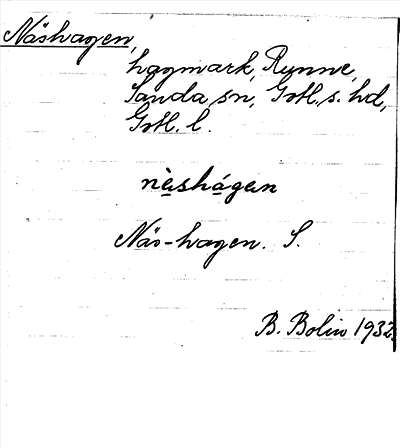 Näshagen,
hagmark, Runne,
Sanda sn, Gotl. s. hd,
Gotl. l.
nèshágen
Näs-hagen. S.
B. Bolin 1932.